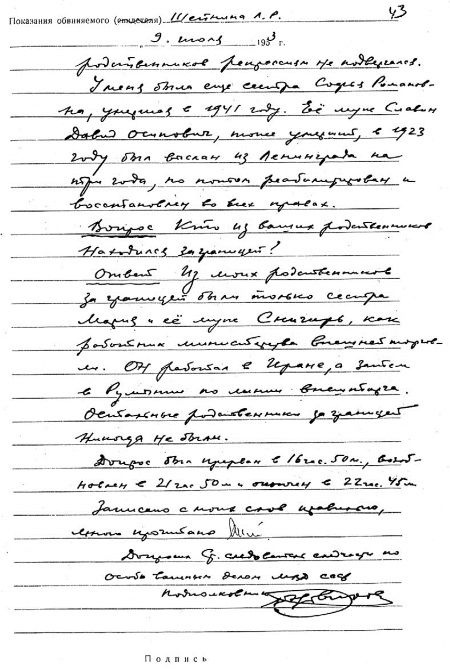 43
Показания обвиняемого (свидетеля) Шейнина Л.Р.
9. июля 1953 г.
родственников репрессиям не подвергался.
У меня была еще сестра Софья Романов-
на, умершая в 1941 году. Её муж Славин
Давид Осипович, тоже умерший, в 1923
году был выслан из Ленинграда на
три года, но потом реабилитирован и
восстановлен во всех правах.
Вопрос Кто из ваших родственников
находился заграницей?
Ответ Из моих родственников
за границей были только сестра
Мария и её муж Снигирь, как
работник министерства внешней торгов-
ли. Он работал в Иране, а затем
в Румынии по линии внешторга.
Остальные родственники за границей
никогда не были.
Допрос был прерван в 16 час. 50 м., возоб-
новлен в 21 час 50 м и окончен в 22 час. 45 м
Записано с моих слов правильно,
мною прочитано
Допросил Ст. следователь следчасти по
особо важным делам мвд ссср
подполковник
Подпись